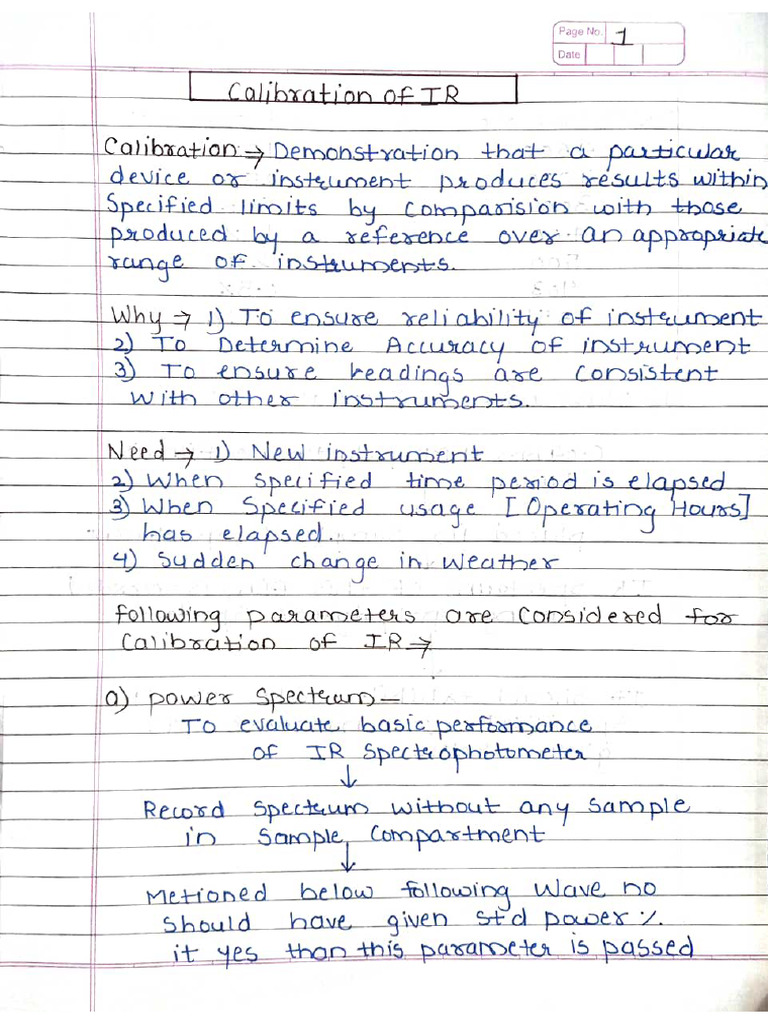 Page No. 1
Date
Calibration of IR
Calibration → Demonstration that a particular
device or instrument produces results within
Specified limits by comparision with those
produced by a reference over an appropriate
range of instruments.
Why → 1) To ensure reliability of instrument
2) To Determine Accuracy of instrument
3) To ensure readings are consistent
with other instruments.
Need → 1) New instrument
2) When specified time period is elapsed
3) When Specified usage [Operating Hours]
has elapsed.
4) Sudden change in weather
following parameters are considered for
Calibration of IR →
a) power spectrum –
To evaluate basic performance
of IR spectrophotometer
↓
Record spectrum without any sample
in sample compartment
↓
Metioned below following wave no
should have given std power %.
it yes than this parameter is passed